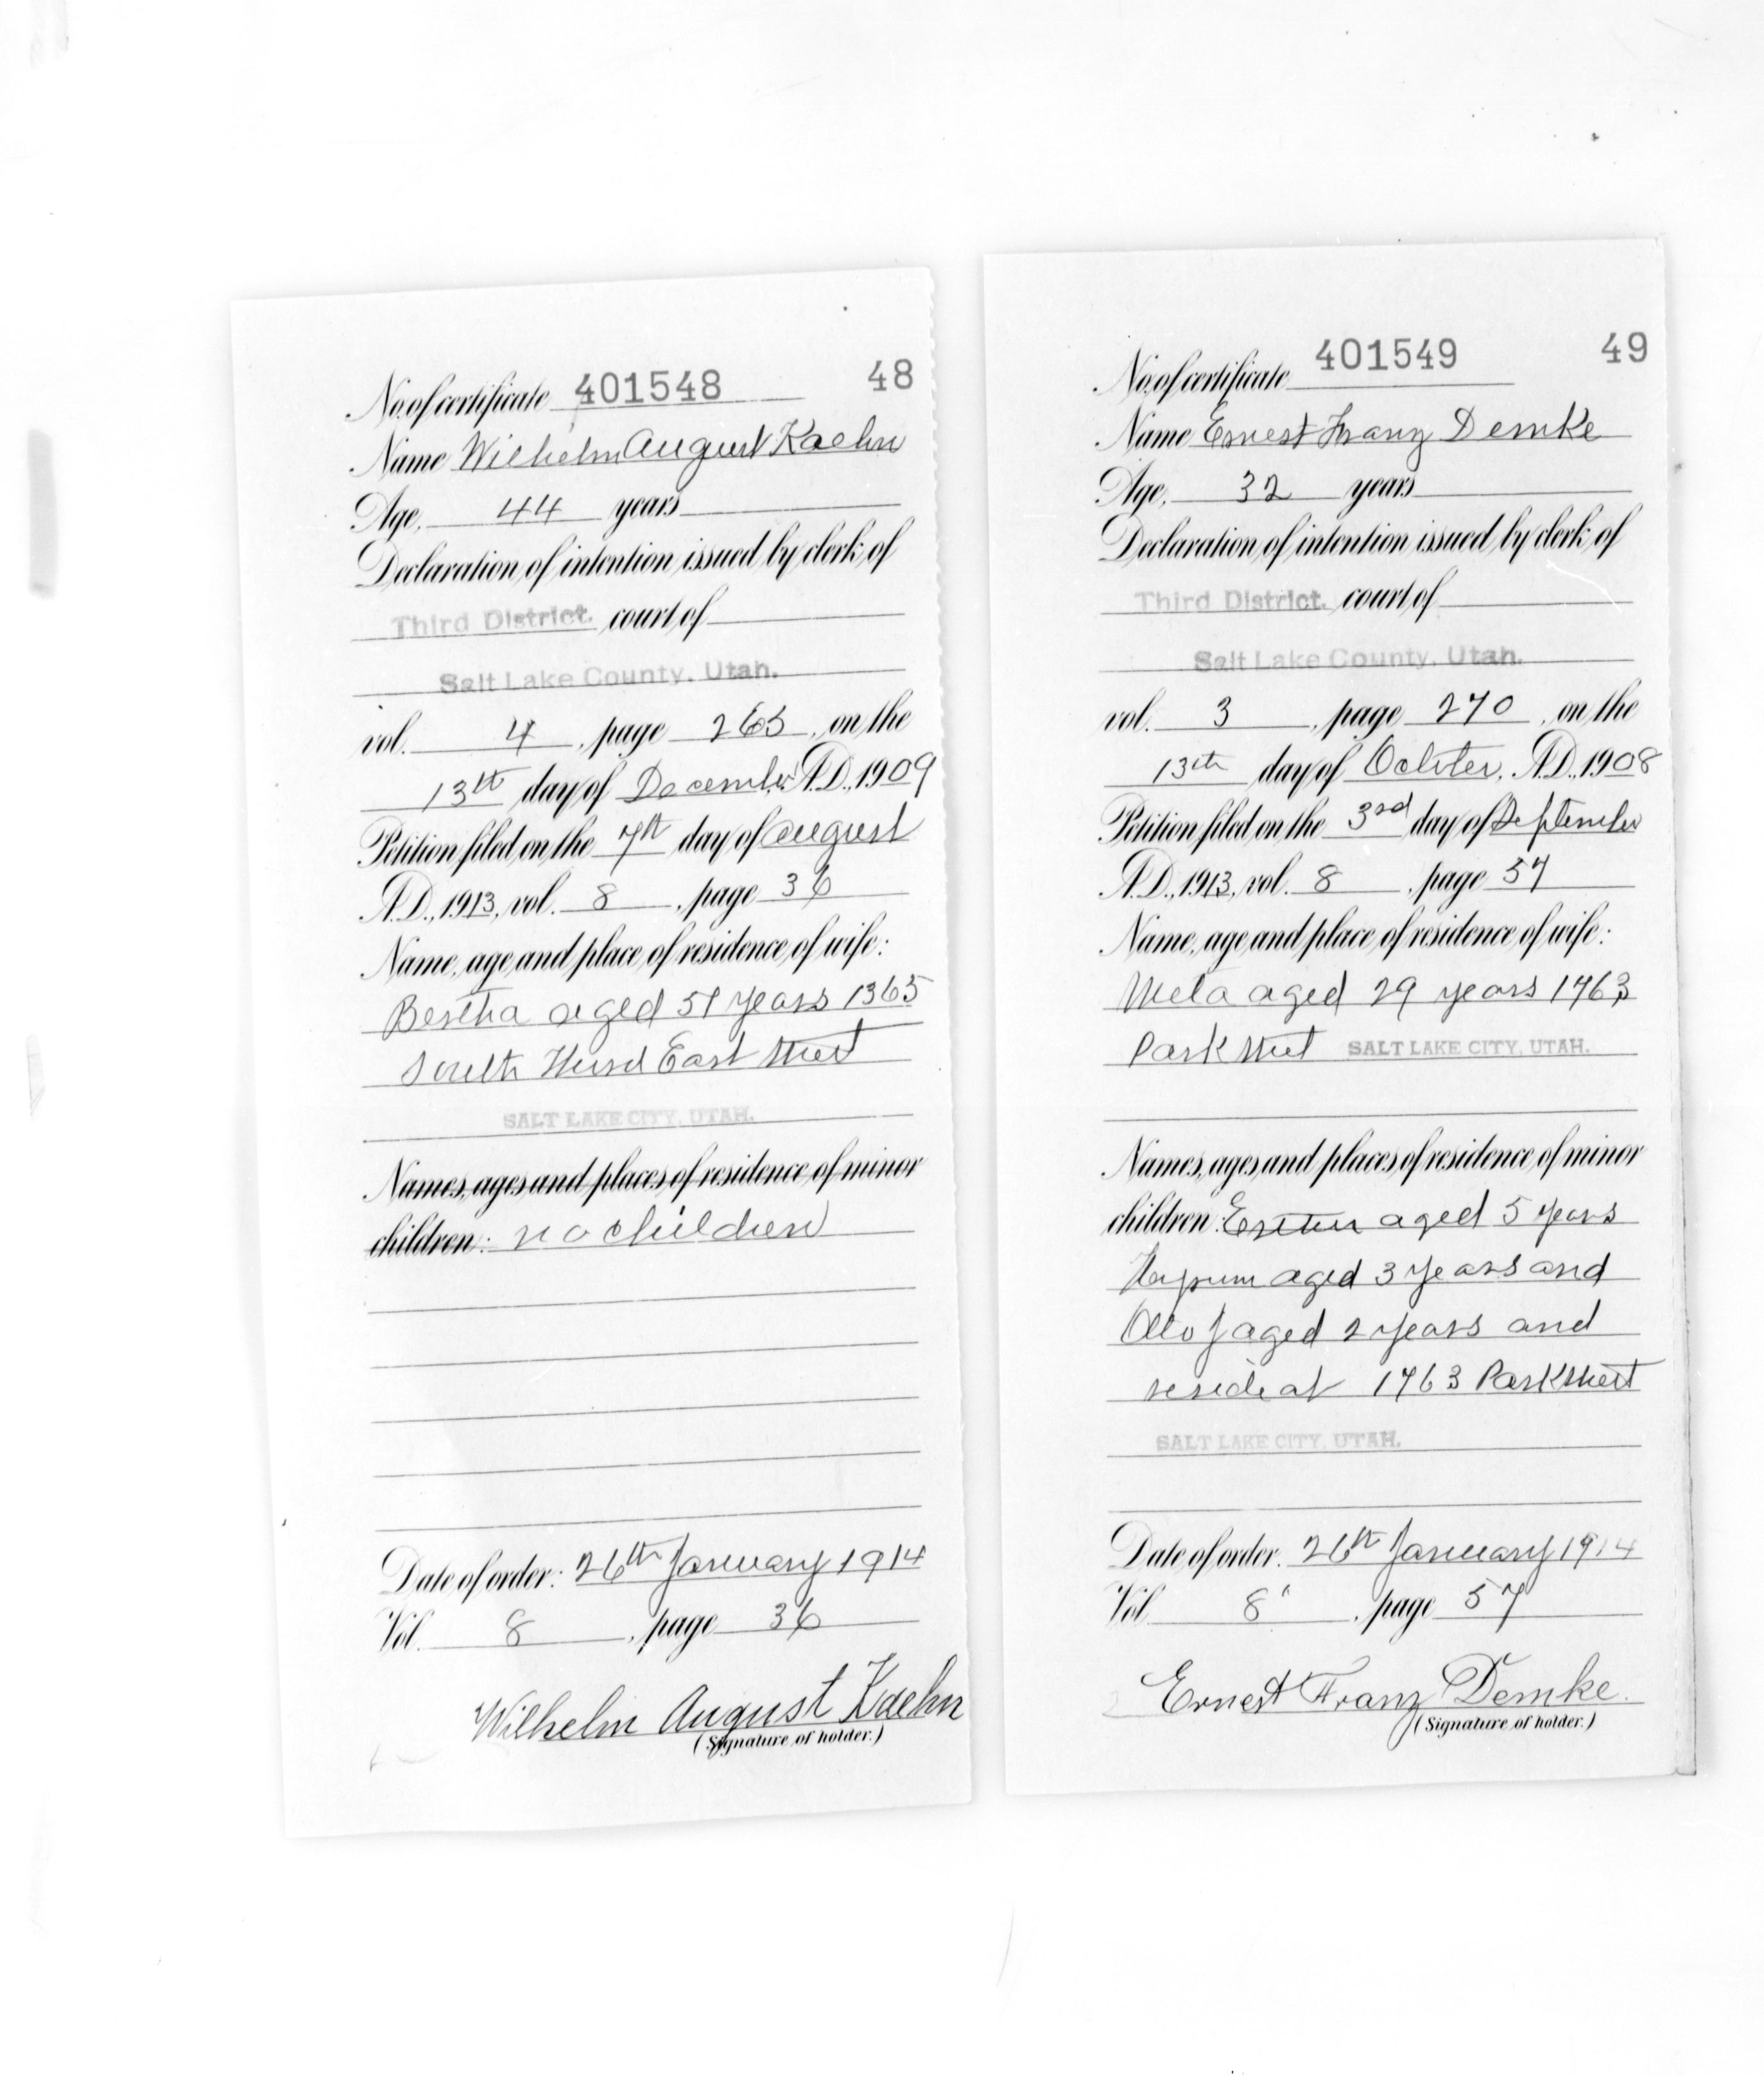 No. of certificate 401548 48
Name Wilhelm August Kaehn
Age, 44 years
Declaration of intention issued by clerk of
Third District. court of
Salt Lake County, Utah.
vol. 4, page 265, on the
13th day of December A.D., 1909
Petition filed on the 7th day of August
A.D., 1913, vol. 8, page 36
Name, age and place of residence of wife:
Bertha aged years 1365
South Third East Street
SALT LAKE CITY, UTAH.
Names, ages and places of residence of minor
children: no children
Date of order: 26th January 1914
Vol. 8, page 36
Wilhelm August Kaehn
(Signature of holder.)
No. of certificate 401549 49
Name Ernest Franz Demke
Age, 32 years
Declaration of intention issued by clerk of
Third District. court of
Salt Lake County, Utah.
vol. 3, page 270, on the
13th day of October, A.D., 1908
Petition filed on the 3rd day of September
A.D., 1913, vol. 8, page 57
Name, age and place of residence of wife:
Meta aged 29 years 1763
Park Street SALT LAKE CITY, UTAH.
Names, ages and places of residence of minor
children: Esther aged 5 years
aged 3 years and
Otto J aged 2 years and
reside at 1763 Park Street
SALT LAKE CITY, UTAH.
Date of order: 26th January 1914
Vol. 8, page 57
Ernest Franz Demke
(Signature of holder.)